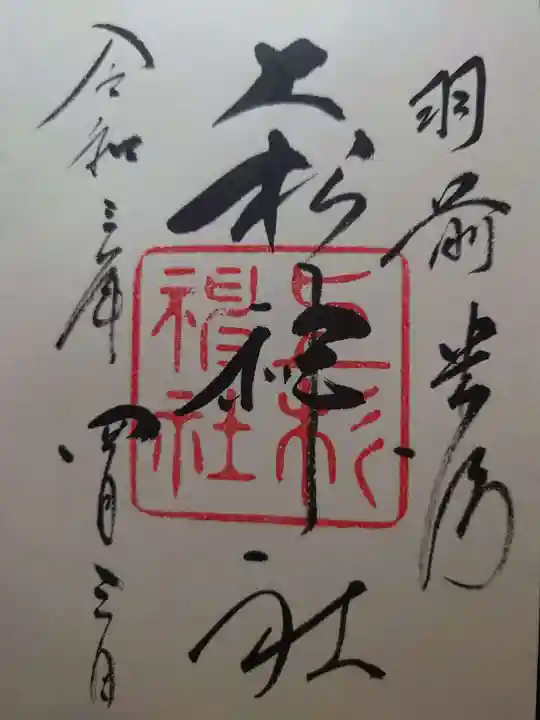 羽前
上杉神社
上杉
神社
令和三年四月三日